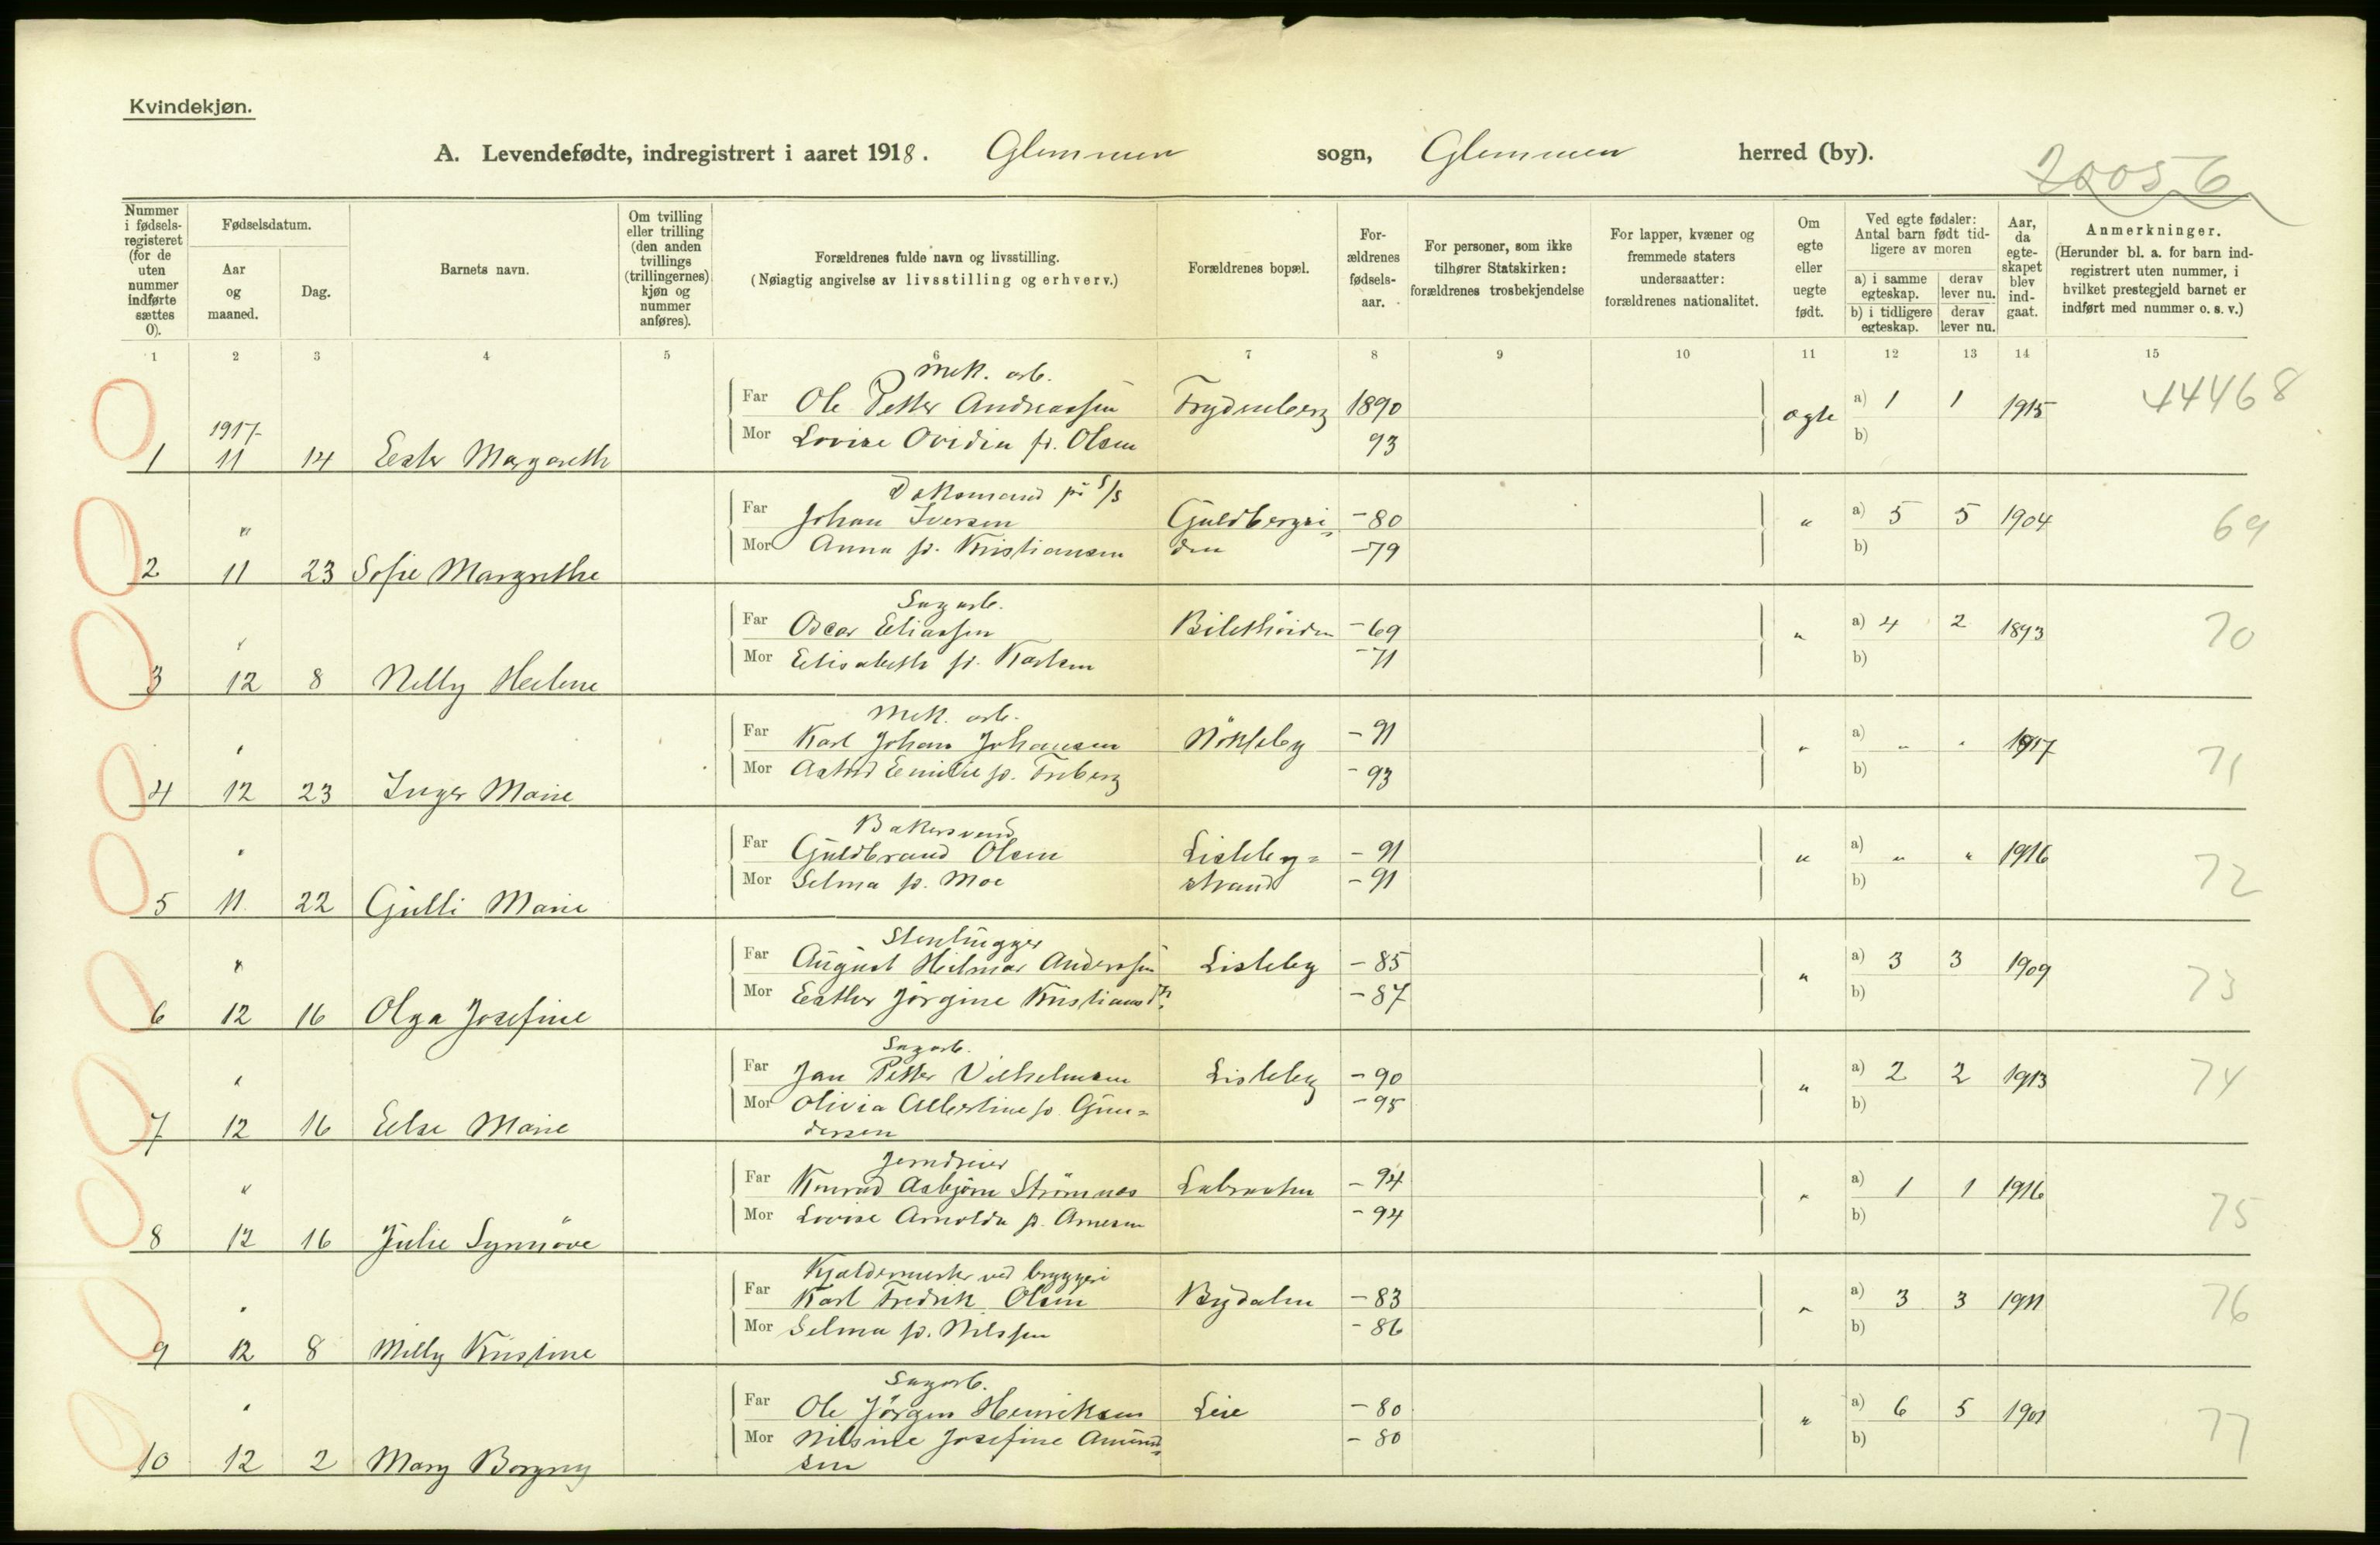 Kvindekjøn.
A. Levendefødte, indregistrert i aaret 1918. Glemmen sogn, Glemmen herred (by).
20056
Nummer i fødsels-registeret (for de uten nummer indførte sættes 0).
Fødselsdatum.
Aar og maaned.
Dag.
Barnets navn.
Om tvilling eller trilling (den anden tvillings (trillingernes) kjøn og nummer anføres).
Forældrenes fulde navn og livsstilling.
(Nøiagtig angivelse av livsstilling og erhverv.)
Forældrenes bopæl.
For-ældrenes fødsels-aar.
For personer, som ikke tilhører Statskirken: forældrenes trosbekjendelse
For lapper, kvæner og fremmede staters undersaatter: forældrenes nationalitet.
Om egte eller uegte født.
Ved egte fødsler: Antal barn født tid-ligere av moren
a) i samme egteskap.
derav lever nu.
b) i tidligere egteskap.
derav lever nu.
Aar, da egte-skapet blev ind-gaat.
Anmerkninger.
(Herunder bl. a. for barn ind-registrert uten nummer, i hvilket prestegjeld barnet er indført med nummer o. s. v.)
1 2 3 4 5 6 7 8 9 10 11 12 13 14 15
Mek. arb.
Far Ole Petter Andreassen Frydenberg 1890 ægte a) 1 1 1915 44468
1917
Mor Lovise Ovidia f. Olsen 93 b)
1 11 14 Ester Margareth
Daksmand på S/S
Far Johan Iversen Guldbergsi= -80 " a) 5 5 1904 69
"
Mor Anna f. Kristiansen den -79 b)
2 11 23 Sofie Margrethe
Sagarb.
Far Oscar Eliassen -69 " a) 4 2 1893 70
"
Mor Elisabeth f. Karlsen -71 b)
3 12 8 Nelly Helene
Mek. arb.
Far Karl Johan Johansen Nökleby -91 " a) " " 1917 71
"
Mor Astrid Emilie f. Friberg -93 b)
4 12 23 Inger Marie
Bakersvend
Far Guldbrand Olsen Lisleby= -91 " a) " " 1916 72
"
Mor Selma f. Moe strand -91 b)
5 11 22 Gulli Marie
Stenhugger
Far August Hilmar Anderssen Lisleby -85 " a) 3 3 1909 73
"
Mor Esther Jörgine Kristiansdtr. -87 b)
6 12 16 Olga Josefine
Sagarb.
Far Jan Petter Vilhelmsen Lisleby -90 " a) 2 2 1913 74
"
Mor Olivia Albertine f. Gun= -95 b)
dersen
7 12 16 Else Marie
Jerndreier
Far Konrad Asbjörn Strömnes Labraaten -94 " a) 1 1 1916 75
"
Mor Lovise Arnolda f. Arnesen -94 b)
8 12 16 Julie Synnöve
Kjældermester ved bryggeri
Far Karl Fredrik Olsen Bydalen -83 " a) 3 3 1911 76
"
Mor Selma f. Nilssen -86 b)
9 12 8 Milly Kristine
Sagarb.
Far Ole Jörgen Henriksen Leie -80 " a) 6 5 1901 77
"
Mor Nilsine Josefine Amund= -80 b)
sen
10 12 2 Mary Borgny